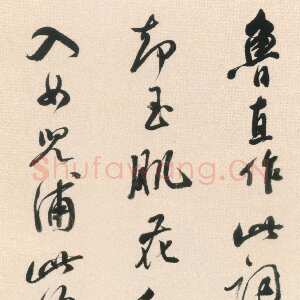 魯直作此詞
却玉肌花
入女兒浦此
ShufaWang.CN